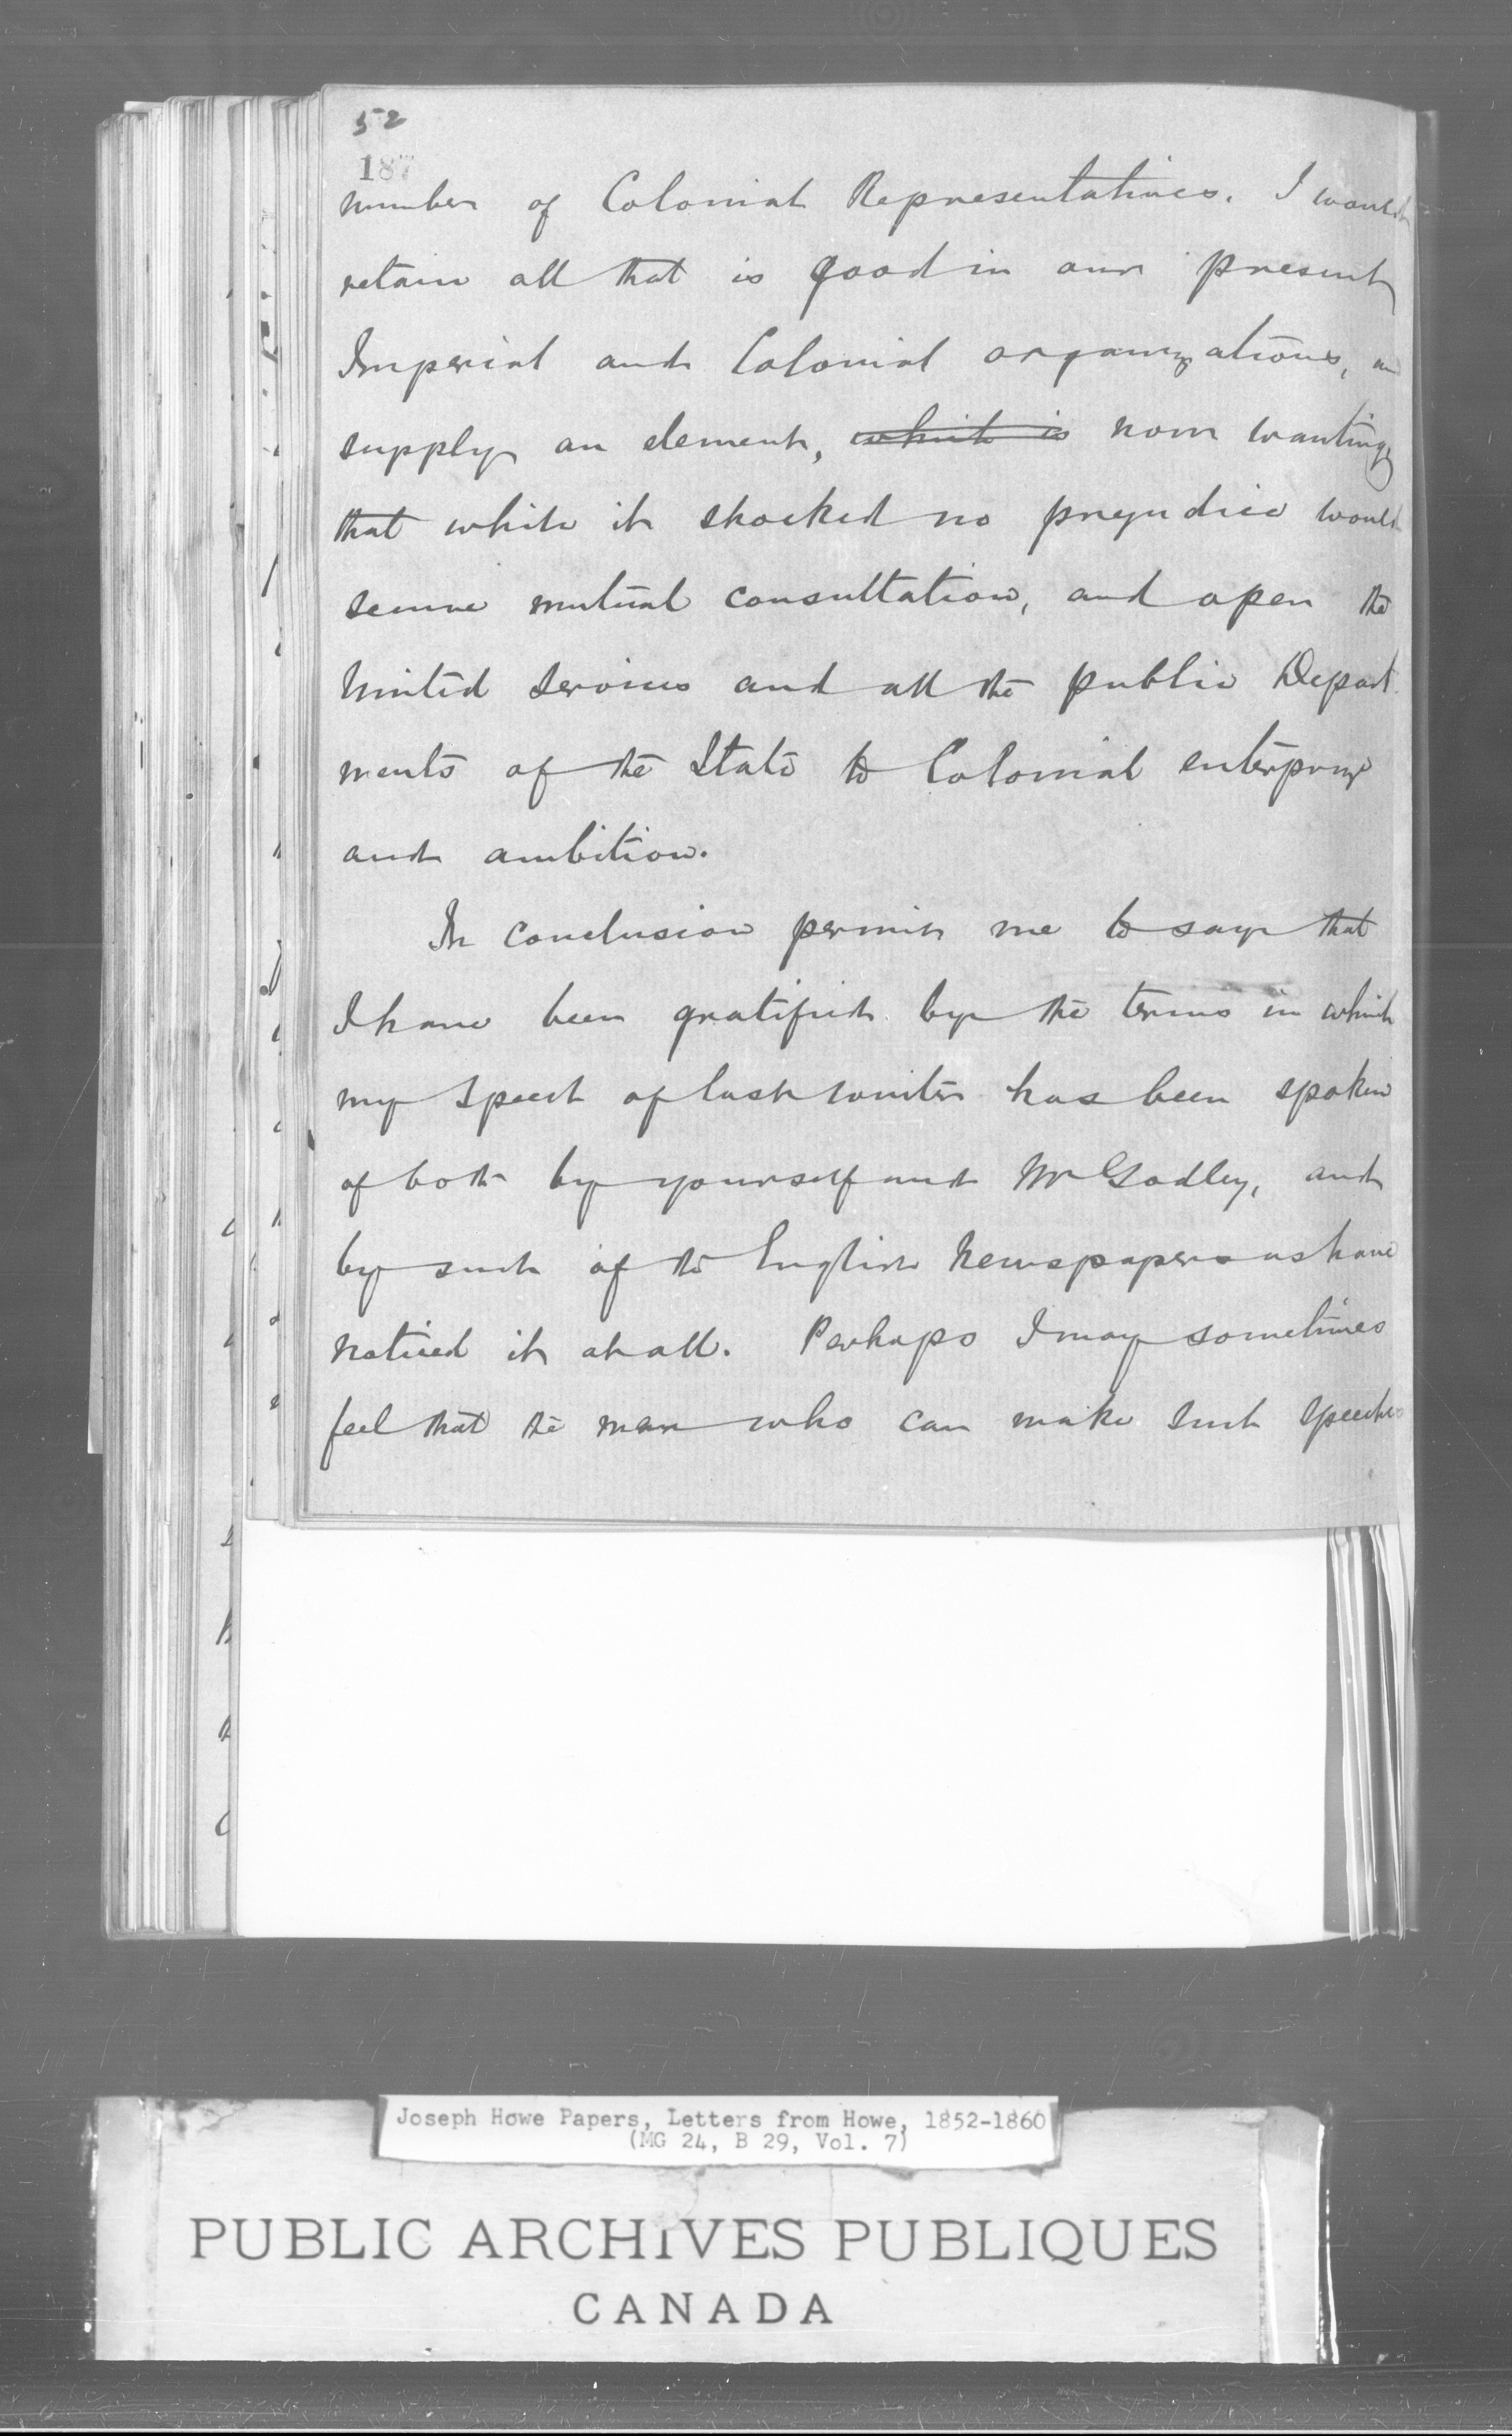 52
187
number of Colonial Representatives. I would
retain all that is good in our present
Imperial and Colonial organizations, an
supply an element, which is now wanting,
that while it shocked no prejudice would
secure mutual consultation, and open the
United Services and all the public Depart
ments of the State to Colonial enterprize
and ambition.
In conclusion permit me to say that
I have been gratified by the terms in which
my speech of last winter has been spoken
of both by yourself and Mr Godley, and
by such of the English Newspapers as have
noticed it at all. Perhaps I may sometimes
feel that the man who can make such speeches
Joseph Howe Papers, Letters from Howe, 1852-1860
(MG 24, B 29, Vol. 7)
PUBLIC ARCHIVES PUBLIQUES
CANADA